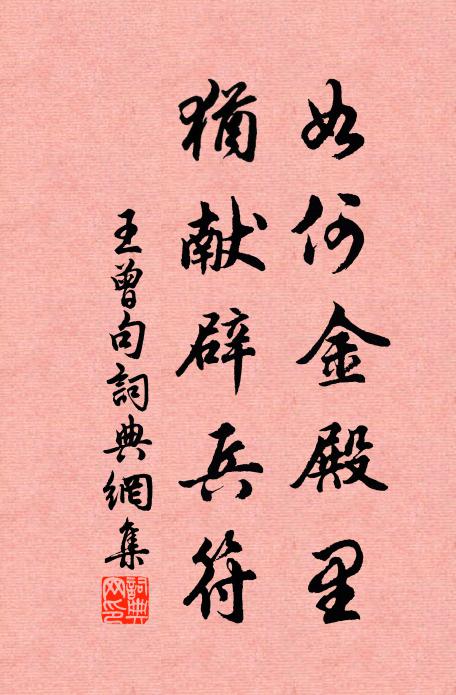 如何金殿里
猶献辟兵符
王曾句詞典網集
詞典網印